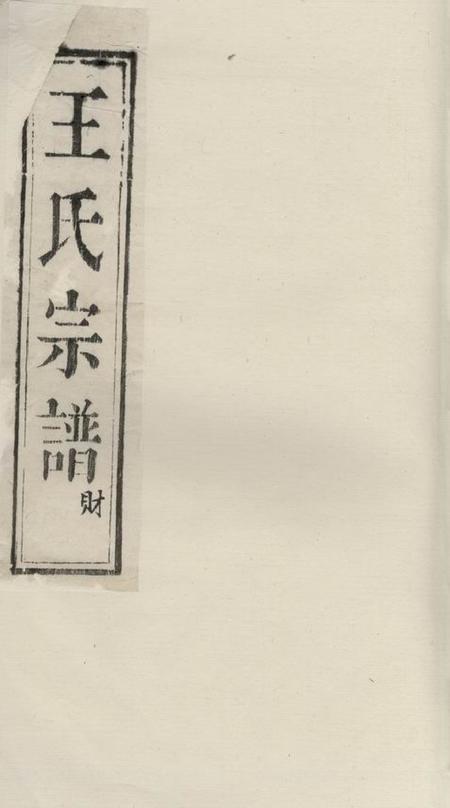 王氏宗譜
財